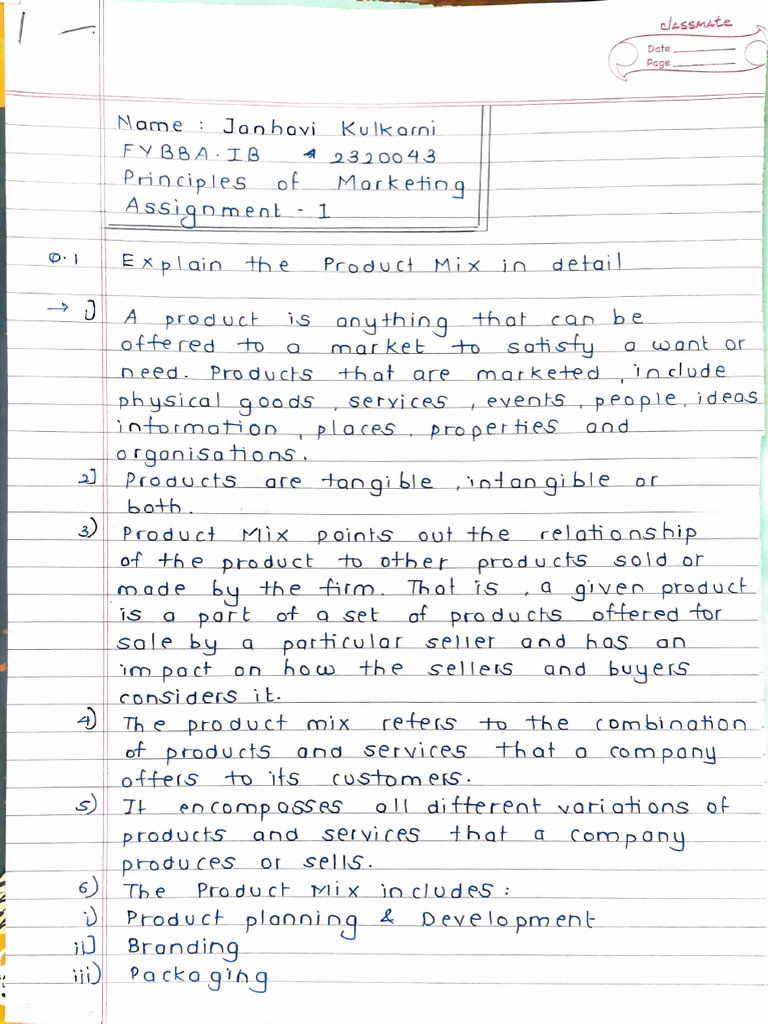 1 —
classmate
Date
Page
Name : Janhavi Kulkarni
FYBBA.IB 2320043
Principles of Marketing
Assignment - 1
Q.1 Explain the Product Mix in detail
→ 1) A product is anything that can be
offered to a market to satisfy a want or
need. Products that are marketed , include
physical goods , services , events , people, ideas
information , places , properties and
organisations.
2] Products are tangible , intangible or
both.
3) Product Mix points out the relationship
of the product to other products sold or
made by the firm. That is , a given product
is a part of a set of products offered for
sale by a particular seller and has an
impact on how the sellers and buyers
considers it.
4) The product mix refers to the combination
of products and services that a company
offers to its customers.
5) It encompasses all different variations of
products and services that a company
produces or sells.
6) The Product Mix includes :
i) Product planning & Development
ii] Branding
iii) Packaging